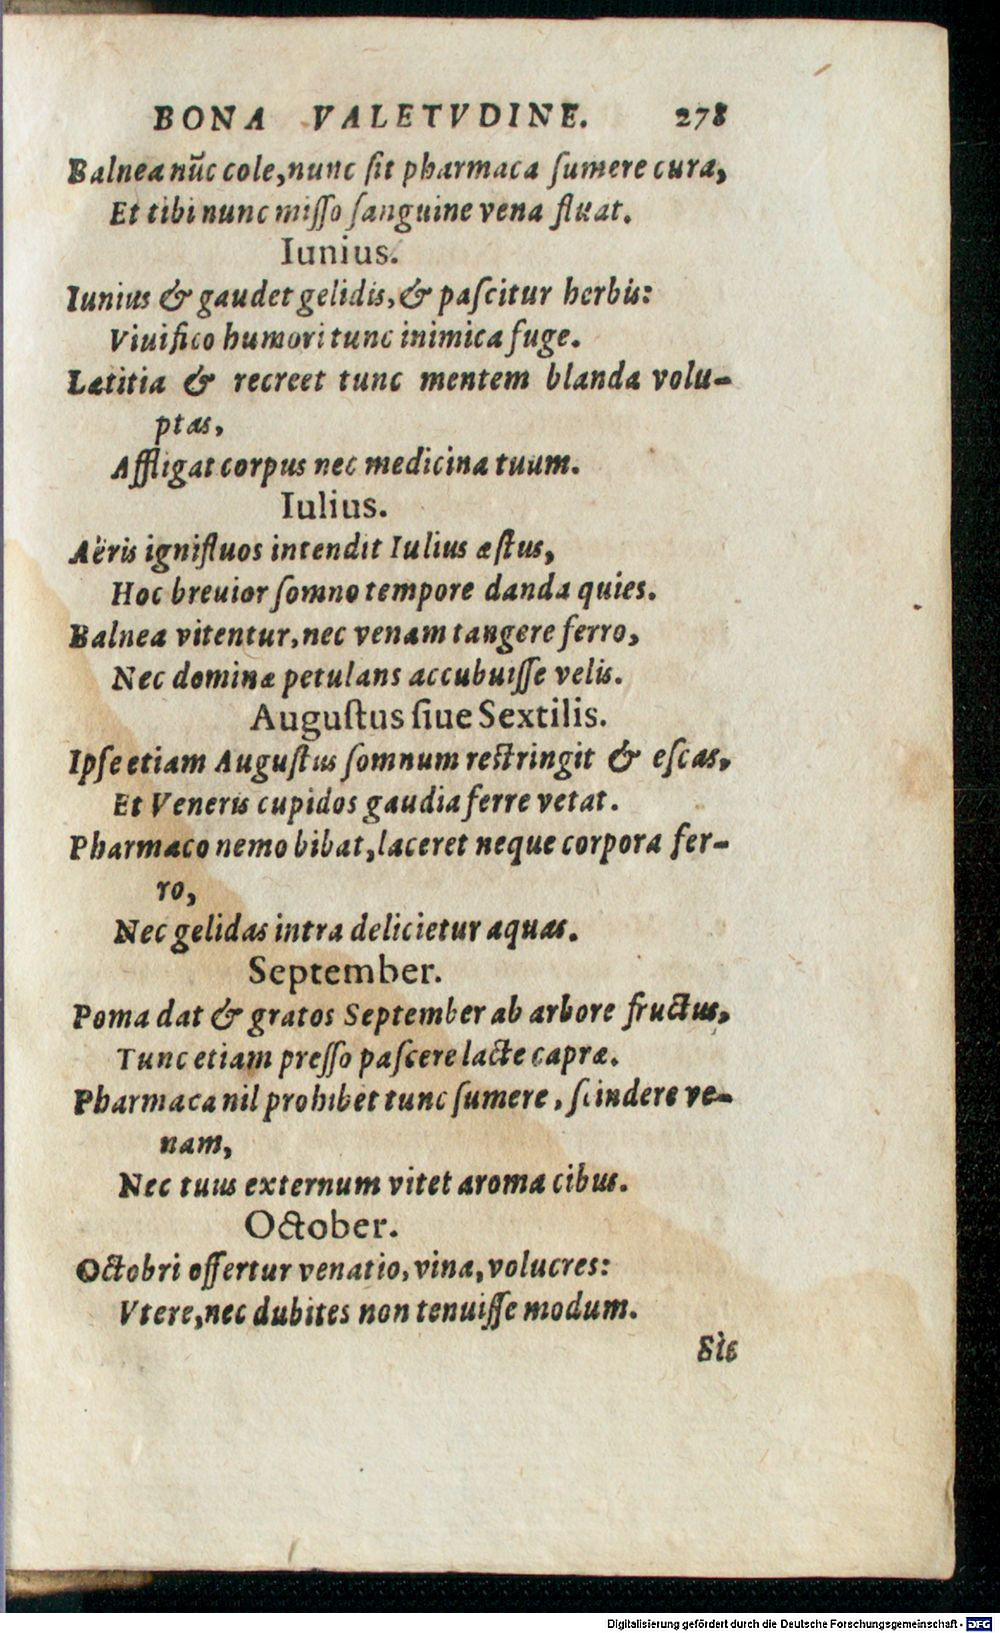 BONA VALETVDINE. 278
Balnea nūc cole, nunc ſit pharmaca ſumere cura,
Et tibi nunc miſſo ſanguine vena fluat.
Iunius.
Iunius & gaudet gelidis, & paſcitur herbis:
Viuifico humori tunc inimica fuge.
Lætitia & recreet tunc mentem blanda volu-
ptas,
Affligat corpus nec medicina tuum.
Iulius.
Aëris ignifluos intendit Iulius æſtus,
Hoc breuior ſomno tempore danda quies.
Balnea vitentur, nec venam tangere ferro,
Nec dominæ petulans accubuiſſe velis.
Auguſtus ſiue Sextilis.
Ipſe etiam Auguſtus ſomnum reſtringit & eſcas,
Et Veneris cupidos gaudia ferre vetat.
Pharmaco nemo bibat, laceret neque corpora fer-
ro,
Nec gelidas intra delicietur aquas.
September.
Poma dat & gratos September ab arbore fructus,
Tunc etiam preſſo paſcere lacte capræ.
Pharmaca nil prohibet tunc ſumere, ſcindere ve-
nam,
Nec tuus externum vitet aroma cibus.
October.
Octobri offertur venatio, vina, volucres:
Vtere, nec dubites non tenuiſſe modum.
Sic
Digitalisierung gefördert durch die Deutsche Forschungsgemeinschaft - DFG